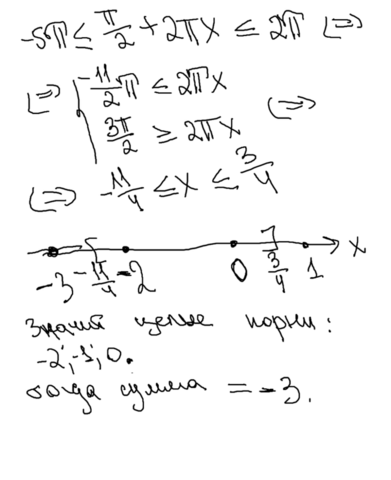 -5π ≤ π/2 + 2πx ≤ 2π ⇔
⇔ { -11/2 π ≤ 2πx
3π/2 ≥ 2πx ⇔
⇔ -11/4 ≤ x ≤ 3/4
-3 -11/4 -2 0 3/4 1 x
Значит целые корни:
-2; -1; 0.
тогда сумма = -3.